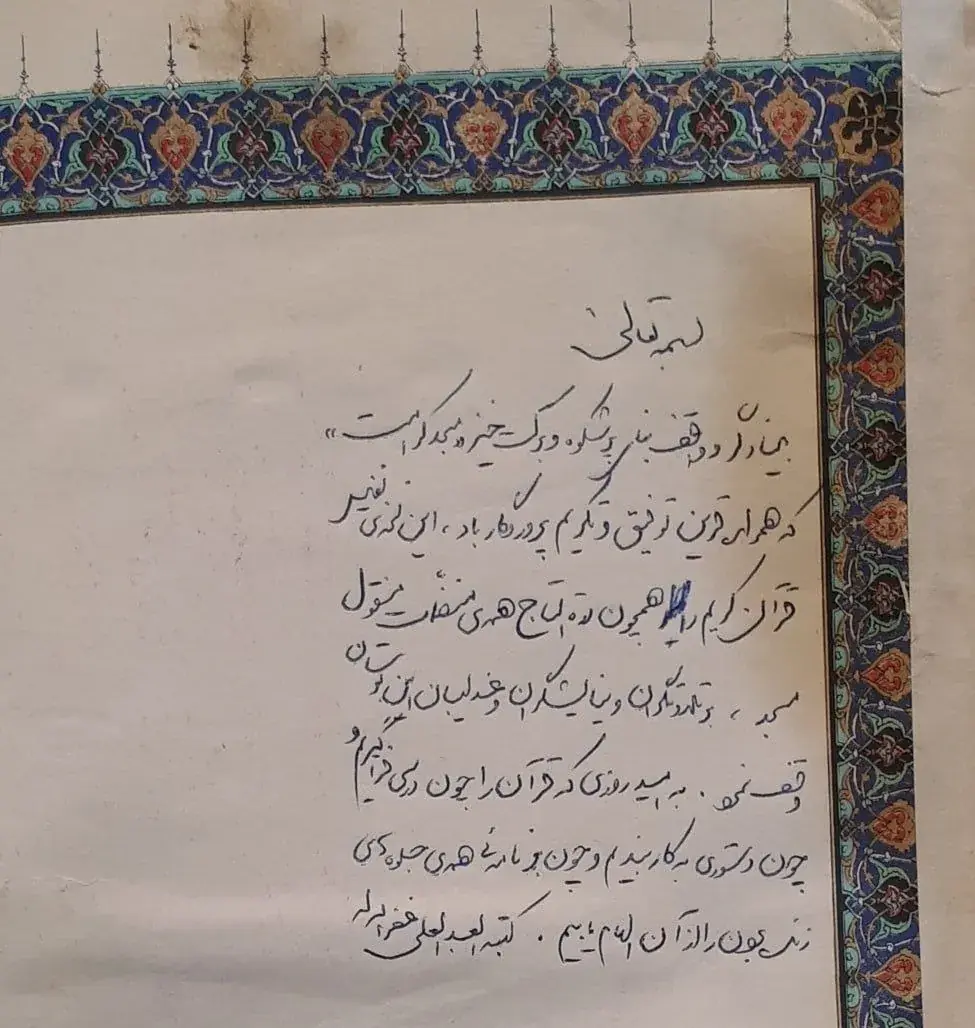 بسمه تعالی
بنیانگر و واقف بنای پرشکوه و برکت خیز «مسجد کرامت»
که همواره قرین توفیق و تکریم پروردگار باد، این دوره‌ی تفسیر
قرآن کریم را همچون درة التاج همه‌ی متصلات منقول
مسجد، بر تلاوتگران و نیایشگران و عندلیبان این بوستان
وقف نمود. به امید روزی که قرآن را چون درسی فراگیریم و
چون دستوری به کار بندیم و چون برنامه‌ئی همه‌ی جلوه‌های
زندگیمون را از آن الهام یابیم. کتبه العبد العلی غفر الله له